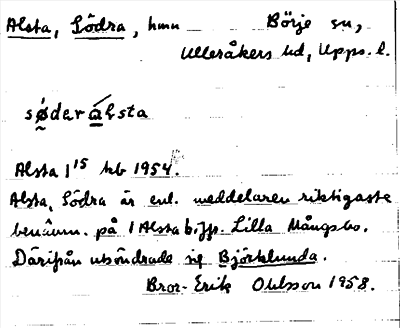 Alsta, Södra, hmn Börje sn,
Ulleråkers hd, Upps. l.
södar álsta
Alsta 1¹⁵ hb 1954.
Alsta, Södra är enl. meddelaren riktigaste
benämn. på 1 Alsta b. jfr. Lilla Mångsbo.
Därifrån utsöndrade sig Björklunda.
Bror-Erik Ohlsson 1958.